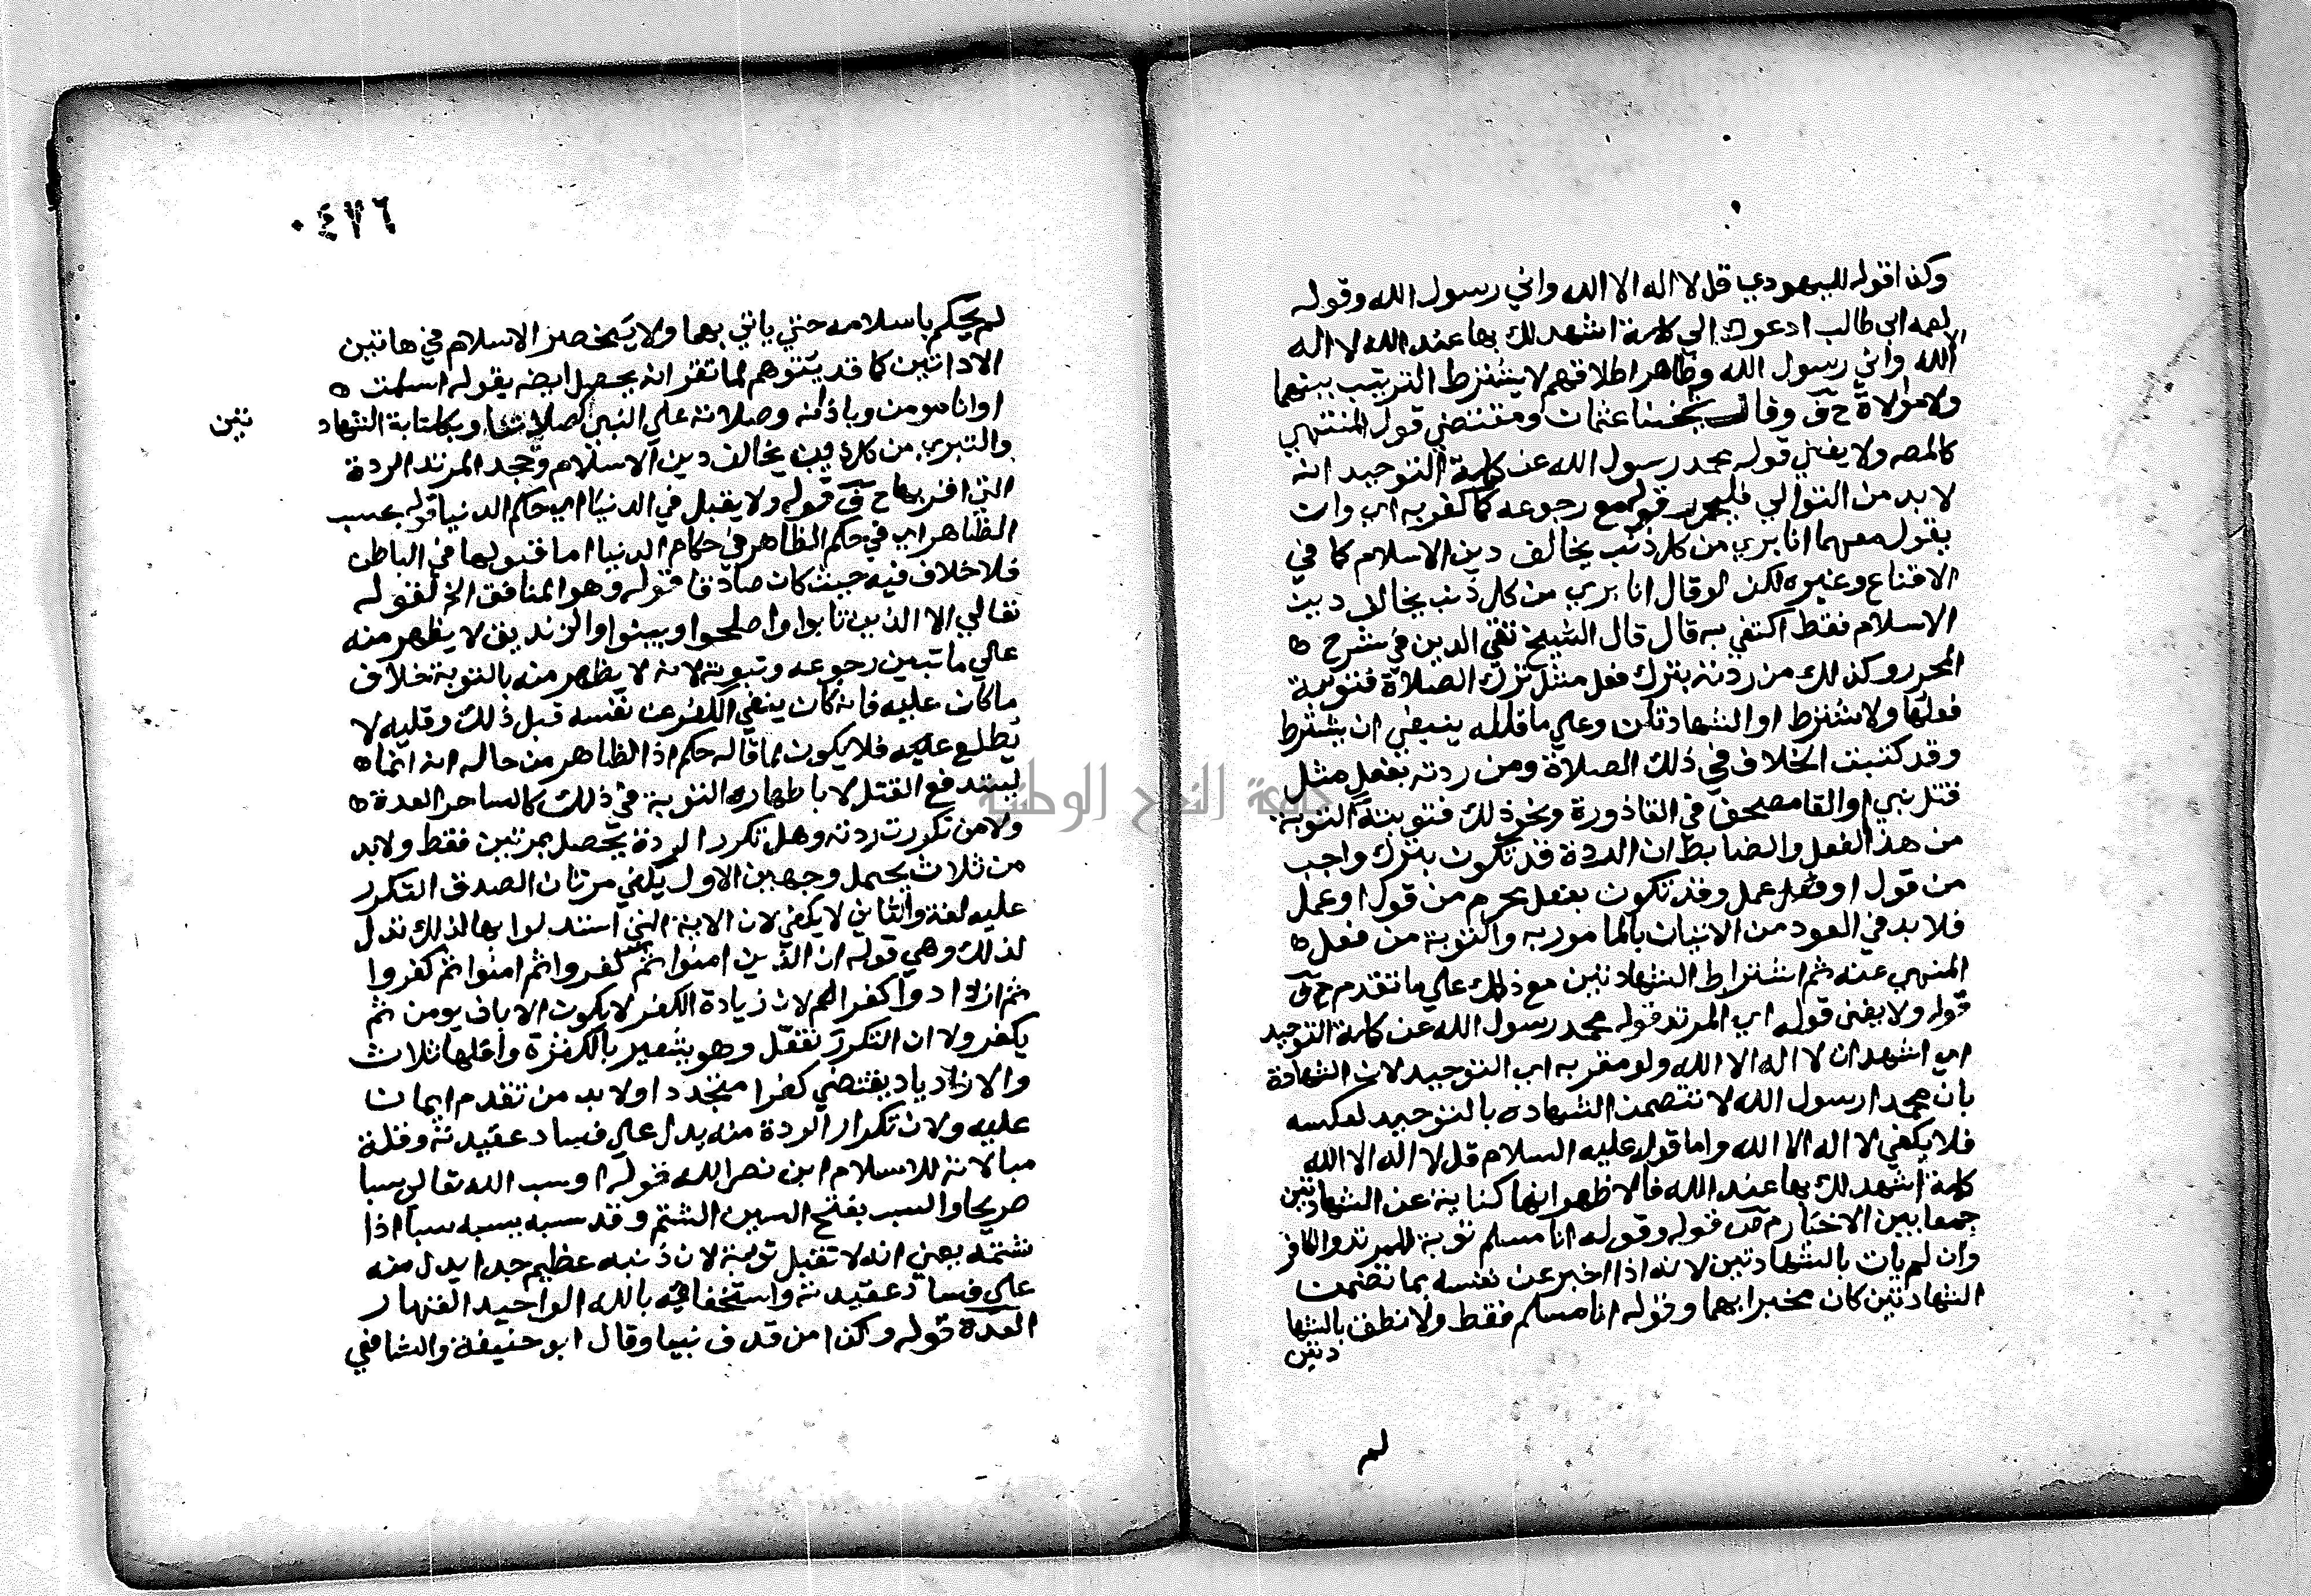 وكذا قوله لليهودي قل لا اله الا الله واني رسول الله وقوله
لعمه ابي طالب ادعوك الي كلمة اشهد لك بها عند الله لا اله الا
الله واني رسول الله وظاهر اطلاقهم لا يشترط الترتيب بينهما
ولا موالاة ح ف وقال شيخنا عثمان ومقتضي قول المنتهي
كالمص ولا يغني قوله محمد رسول الله عن كلمة التوحيد انه
لا بد من التوالي قوله مع رجوعه عما كفر به اي وان
يقول معهما انا بري من كل دين يخالف دين الاسلام كما في
الاقناع وغيره لكن لو قال انا بري من كل دين يخالف دين
الاسلام فقط اكتفي به قال قال الشيخ تقي الدين في شرح ه
المحرر وكذلك من ردته بترك فعل مثل ترك الصلاة فتوبته
فعلها ولا يشترط او الشهادتان وعلي ما قلله ينبغي ان يشترط
وقد كتبت الخلاف في ذلك الصلاة ومن ردته بفعل مثل
قتل نبي او القا مصحف في القاذورة ونحو ذلك فتوبته التوبة
من هذ الفعل والضابط ان الردة قد تكون بترك واجب
من قول او فعل عمل وقد تكون بفعل محرم من قول او عمل
فلا بد في العود من الاتيان بالمامور به والتوبة من فعل ه
المنهي عنه ثم اشتراط الشهادتين مع ذلك علي ما تقدم ح ف
قوله ولا يغني قوله اي المرتد قوله محمد رسول الله عن كلمة التوحيد
اي اشهد ان لا اله الا الله ولو مقر به اي التوحيد لان الشهادة
بان محمدا رسول الله لا تتضمن الشهاده بالتوحيد لعكسه
فلا يكفي لا اله الا الله واما قوله عليه السلام قل لا اله الا الله
كلمة اشهد لك بها عند الله فالاظهر انها كناية عن الشهادتين
جمعا بين الاخبار م ص قوله وقوله انا مسلم توبة للمرتد والكافر
وان لم يات بالشهادتين لانه اذا اخبر عن نفسه بما تضمنت
الشهادتين كان مخبرا بهما وقوله انا مسلم فقط ولا نطق بالشها
دتين
لم
٠٤٧٦
لم يحكم باسلامه حتي ياتي بهما ولا ينحصر الاسلام في هاتين
الاداتين كما قد يتوهم لما تقر انه يحصل ايضه بقوله اسلمت ه
او انا مومن وباذانه وصلاته علي النبي كصلاتنا وبكتابة الشهاد
تين
والتبري من كل دين يخالف دين الاسلام وجحد المرتد الردة
التي اقر بها ح ف قوله ولا يقبل في الدنيا اي حكم الدنيا قوله بحسب
الظاهر اي في حكم الظاهر في حكام الدنيا اما قبولها في الباطن
فلا خلاف فيه حيث كان صادقا قوله وهو المنافق الخ لقوله
تعالي الا الذين تابوا واصلحوا وبينوا والزنديق لا يظهر منه
علي ما تبين رجوعه وتبوته لانه لا يظهر منه بالتوبة خلاف
ما كان عليه فانه كان ينفي الكفر عن نفسه قبل ذلك وقلبه لا
يطلع عليه فلا يكون لما قاله حكم اذ الظاهر من حاله انه انما ه
يستدفع القتل لا باظهاره التوبة في ذلك كالساحر العدة ه
ولا من تكررت ردته وهل تكرر الردة يحصل بمرتين فقط ولابد
من ثلاث يحتمل وجهين الاول يكفي مرتان الصدق التكرر
عليه لغة والثاني لا يكفي لان الاية التي استدلوا بها لذلك تدل
لذلك وهي قوله ان الذين امنوا ثم كفروا ثم امنوا ثم كفروا
ثم ازدادوا كفرا الخ لان زيادة الكفر لا يكون الا بان يومن ثم
يكفر ولا ان التكرر تفعّل وهو يشعر بالكثرة واقلها ثلاث
والازدياد يقتضي كفرا متجددا ولا بد من تقدم ايمان
عليه ولان تكرار الردة منه يدل علي فساد عقيدته وقلة
مبالاته للاسلام ابن نصر الله قوله او سب الله تعالي سبا
صريحا والسب بفتح السين الشتم وقد سبه يسبه سبا اذا
شتمه يعني انه لا تقبل توبته لان ذنبه عظيم جدا يدل منه
علي فساد عقيدته واستخفافه بالله الواحيد القهار
العدة قوله وكذا من قذف نبيا وقال ابو حنيفة والشافعي
جامعة النجاح الوطنية